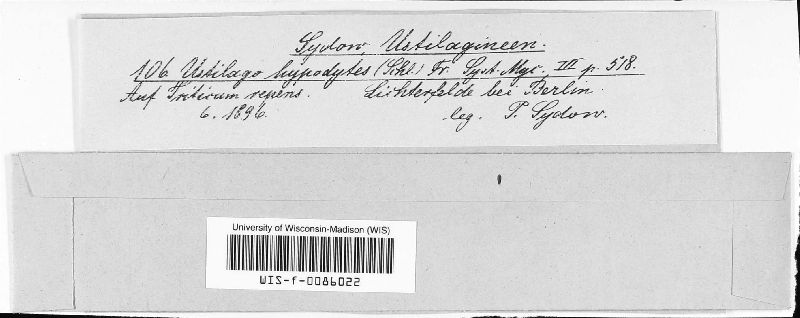 Sydow, Ustilagineen.
106 Ustilago hypodytes (Schl.) Fr. Syst. Myc. III p. 518.
Auf Triticum repens. Lichterfelde bei Berlin.
6. 1896. leg. P. Sydow.
University of Wisconsin-Madison (WIS)
WIS-f-0086022